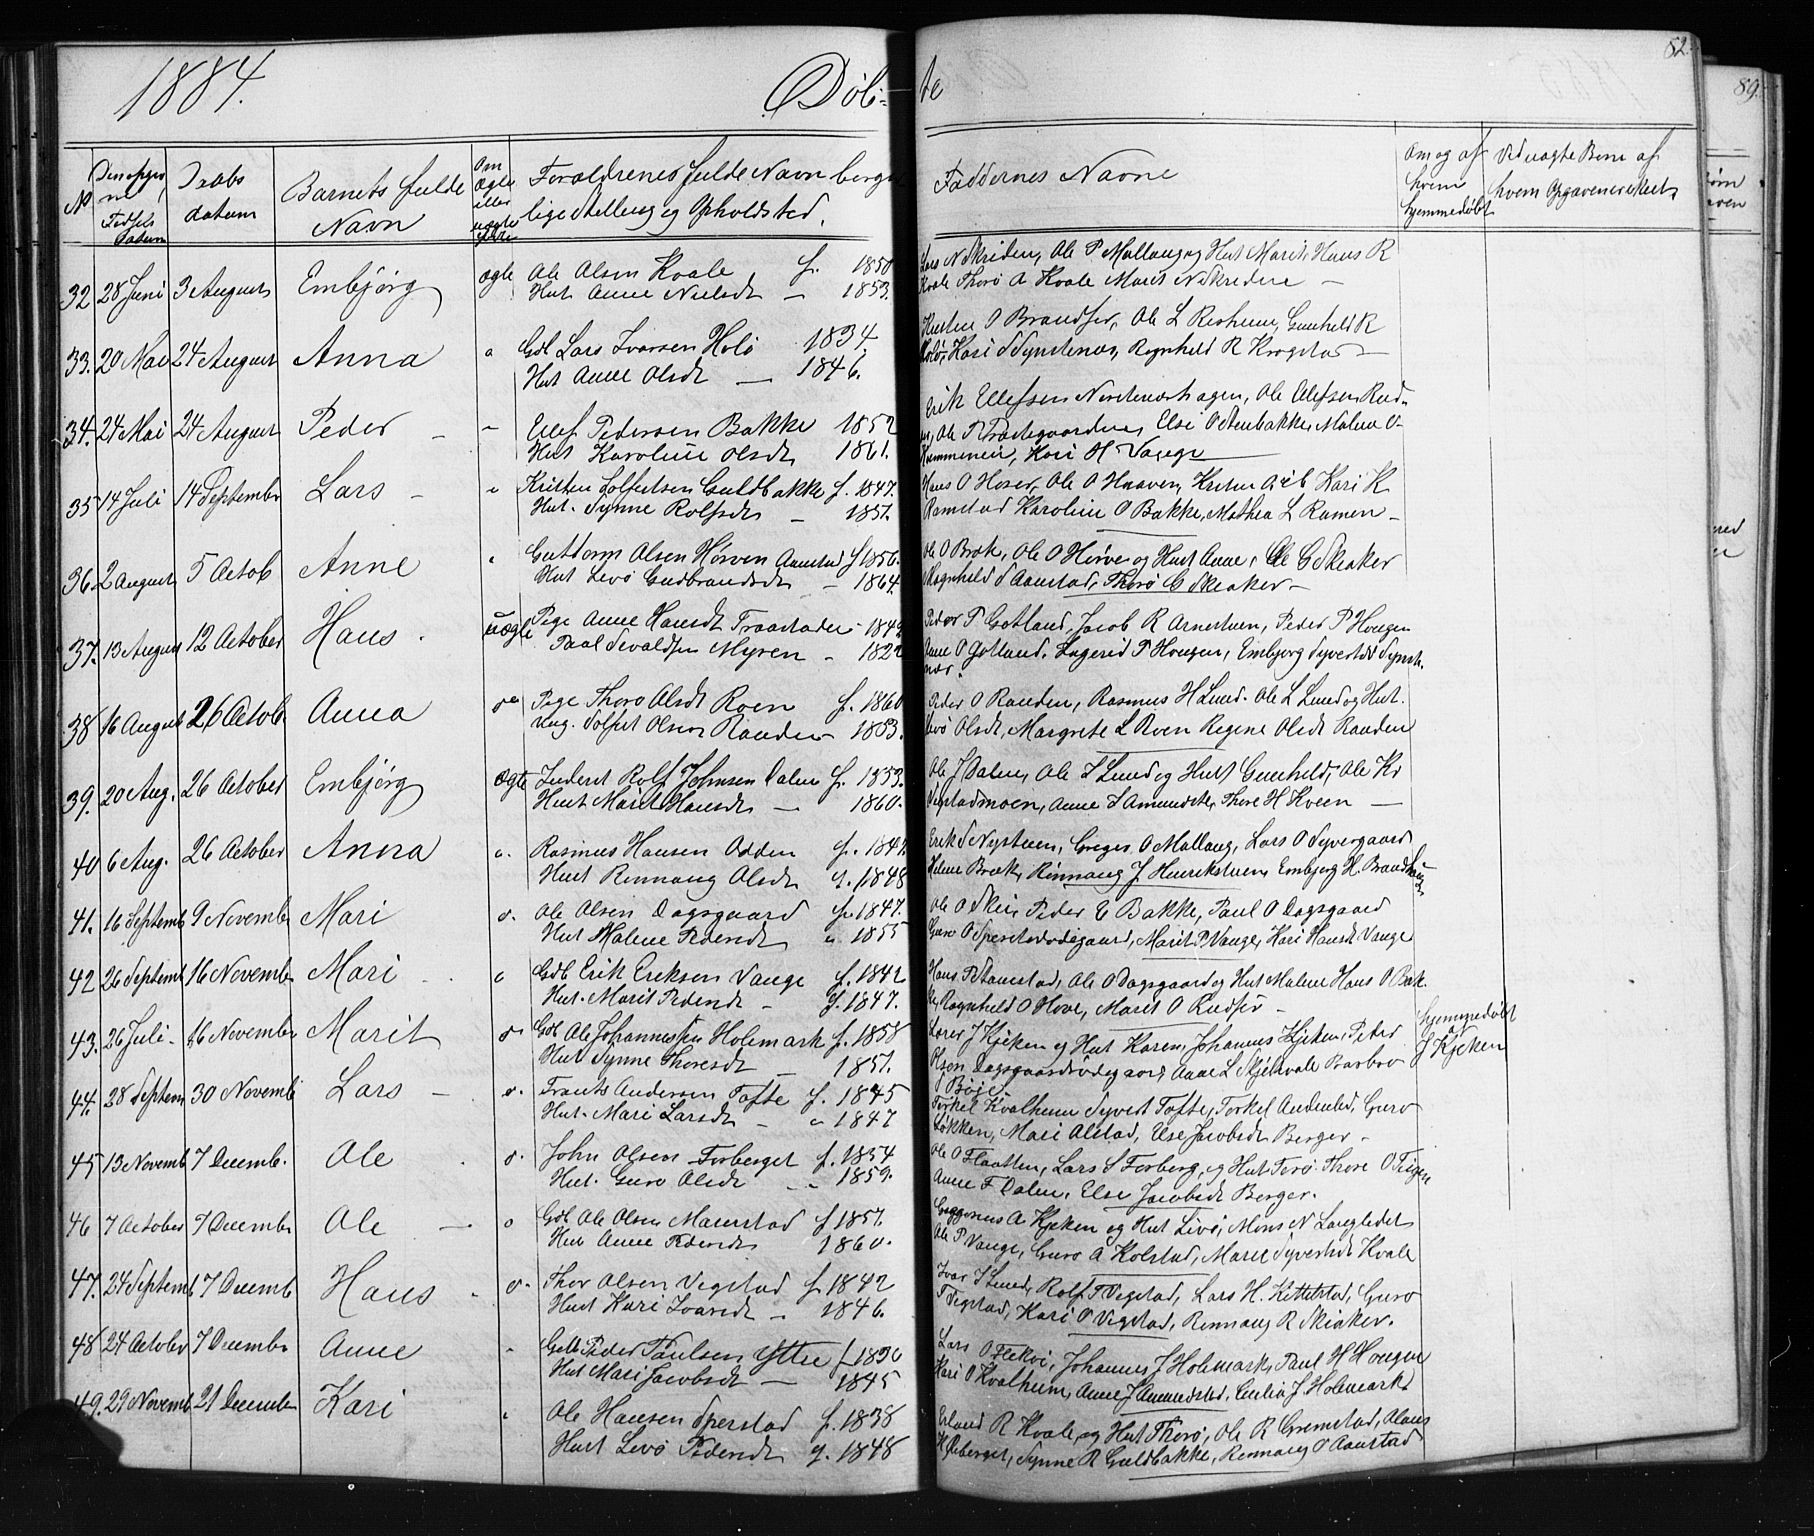 1884.
Döb-
te
82.
89.
No
Fødsels Datum
Daabs datum
Barnets fulde Navn
Om Ægte eller uægte
Forældrenes fulde Navn borger-
lige stilling og Opholdsted.
Faddernes Navne
Om og af hvem hjemmedøbt
Ved uægte Børn af hvem Opgaven er skeet
32 28 Juni 3 August Embjörg ægte Ole Olsen Kvale f. 1850
Hut Anne Nielsdt - 1853.
Lars N Skriden, Ole P Mallaug og Hut Marit, Hans R
Kvale Thorø A Kvale Marit N Skridere -
33. 20 Mai 24 August Anna Gdb Lars Ivarsen Holø 1834.
Hut Anne Olsdt - 1846.
O Brandser, Ole L Resheim, Gunheld R
Holø, Kari Synstenes, Ragnheld R Krogstad
34. 24 Mai 24 August Peder - Ellef Pedersen Bakke 1852
Hut Karoline Olsdt 1861.
Erik Ellefsen Nordenvorhagen, Ole Olefsen Rud-
en, Ole P Præstegaarden, Else O Stenbakke, Malene O-
Kari H Vange
35 14 Juli 14 Septembr Lars - Kristen Solfestsen Guldbakke f. 1847.
Hut. Synne Rolfsdt - 1851.
Hans O Hoser, Ole O Haaven, Kari K
Ramstad Karoline O Bakke, Mathea L Ramen -
36 2 August 5 Octob Anne Guttorm Olsen Hörven Aanstad f 1856.
Hut Levø Gudbrandsdt - 1864.
Ole O Brok, Ole O Hörve og Hut Anne, Ole G Skeaker
Ragnheld S Aanstad, Thorø G Skeaker -
37. 13 August 12 October Hans uægte Pige Anne Hansdt Traastadei 1842
Paal Sevaldsen Myren - 1822
Peder P Gotland, Jacob R Arnestuen, Peder P Hougen
Anne O Gotland, Ingerid P Hougen, Embjörg Syverstdt Synst-
nær.
38 16 August 26 Octob. Anna do Pige Thorø Olsdt Roen f. 1860
Ung. Solfest Olsen Randen 1853.
Peder O Randen, Rasmus H Lund. Ole L Lund og Hut.
Levø Olsdt, Margrete L Roen Regine Olsdt Randen
39. 20 Aug. 26 October Embjörg ægte Inderst Rolf Johnsen Dalen f. 1853.
Hut Marit Hansdt - 1860.
Ole J Dalen, Ole S Lund og Hut Gunheld, Ole K
Vegstadmoen, Anne S Amundste, Thore H Kveen -
40 6 Aug. 26 October Anna Rasmus Hansen Odden f. 1847.
Hut Rennaug Olsdt f. 1848
Erik S Nystuen, Greger O Mallaug, Lars O Syvergaard
Helene Brok, Rönnaug J Henrikstuen Embjörg H. Brand
41. 16 Septemb 9 Novembr Mari Ole Olsen Dagsgaard f. 1847.
Hut Malene Pedersdt 1855
Ole O Skei, Peder E Bakke, Paul O Dagsgaard
Guro O Sperstadödegaard, Marit P Vange, Kari Hansdt Vange
42 26 Septemb 16 Novembr Mari Gdb Erik Eriksen Vange f. 1842
Hut. Marit Pedersdt - f. 1847.
Hans P Stamstad, Ole O Dagsgaard og Hut Malene Hans O Bak-
ke, Ragnheld O Hove, Marit O Rudsær -
43. 26 Juli. 16 Novembr Marit Gdb Ole Johannessen Holemark f. 1858
Hut Synne Thoresdt - 1857.
J Kjeken og Hut Karen, Johannes Kjeken, Peder
Olsen Dagsgaardsødegaard, Anne L Skjelkvale Barbro
Böje
hjemmedøbt
af
J Kjeken
44. 28 Septem 30 Novemb Lars - Frants Andersen Tofte f. 1845
Hut. Mari Larsdt - 1847
Torkel Kvalheim Syvert Tofte, Torkel Andersted, Guro
Løkken, Mari Olstad, Else Jacobsdt Berger -
45 13 Novemb 7 Decemb. Ole John Olsen Forberget f. 1854
Hut. Guro Olsdt - 1859.
Ole O Flaatten, Lars S Forberg, og Hut Torø. Thore O Teigen
Anne F Dalen, Else Jacobsdt Berger.
46 7 October 7 Decembr Ole - Gdb Ole Olsen Marestad f 1857.
Hut Anne Pedersdt 1860.
A Kjeken og Hut Levø, Mons N Langledet
Ole P Vange, Guro A Kolstad, Marie Syvertsdt Kvale
47. 24 Septemb 7 Decemb Hans Thor Olsen Vegstad f 1842
Hut Kari Ivarsdt - 1846.
Ivar S Lund, Rolf T Vegstad, Lars H. Kettelstad, Guro
T Vegstad, Kari O Vegstad, Rennaug R Skiaker.
48 24 October 7 Decembr Anne Gdb Peder Paulsen Ytter f 1830
Hut Mari Jacobsdt - 1845
Lars O Flekøi, Johannes J Holemark, Paul H Hougen
Kari O Kvalheim, Anne J Amundstad, Cecilia J Holemark
49. 29 Novemb 21 Decembr Kari Ole Hansen Sperstad f. 1838
Hut Levø Pedersdt f. 1848
Erland R Kvale, og Hut Thorø, Ole R Gremstad, Olaus
H Öeberget, Synne R Guldbakke, Rennaug O Aanstad